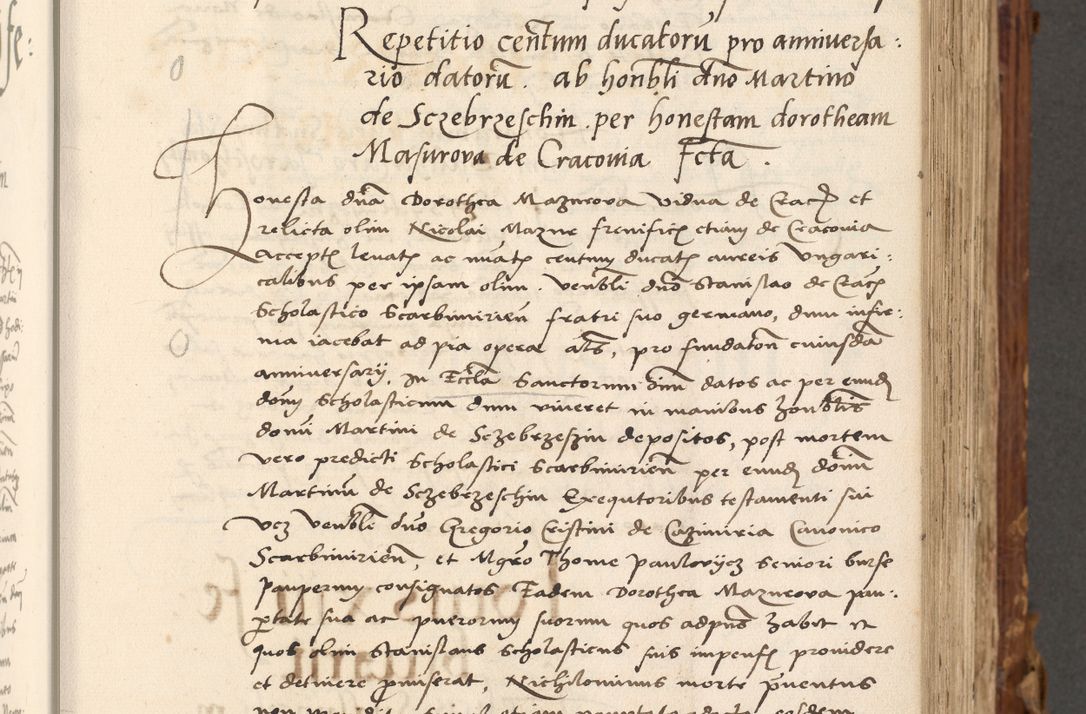 Repetitio centum ducatorū pro anniversa:
rio datorū. ab honbli dno Martino
de Sczebrzeschin per honestam dorotheam
Masurova de Cracovia Fcta.
Honesta dnā Dorothea Mazurova vidua de Crac et
relicta olim Nicolai Mazur frenificis etiam de Cracovia
acceptis levatis ac centum ducatis aureis Ungari:
calibus per ipsam olim. Venbli dno Stanislao de Crac
Scholastico Scarbimirien fratri suo germano, dum infir:
ma iacebat ad pia opera pro fundaton cuiusdā
anniversarij, In Eccla Sanctorum oīm datos ac per eund
dom Scholasticum dum viveret in manibus honblis
domi Martini de Sczebrzeszin depositos, post mortem
vero predicti Scholastici Scarbimirien per eund domi
Martinū de Sczebrzeschin Exequtoribus testamenti sui
vcz Venbli dno Gregorio Cristini de Cazimiria Canonico
Scarbimirien, et Mgro Thome Paulovycz Seniori burse
Pauperum consignatos Eadem Dorothea Mazurova pau:
ptate sua ac puerorum suorum quos adpns habet et
quos olim Stanislaus Scholasticus suis impensis providere
et detinere pmiserat, Nichilominus morte pventus